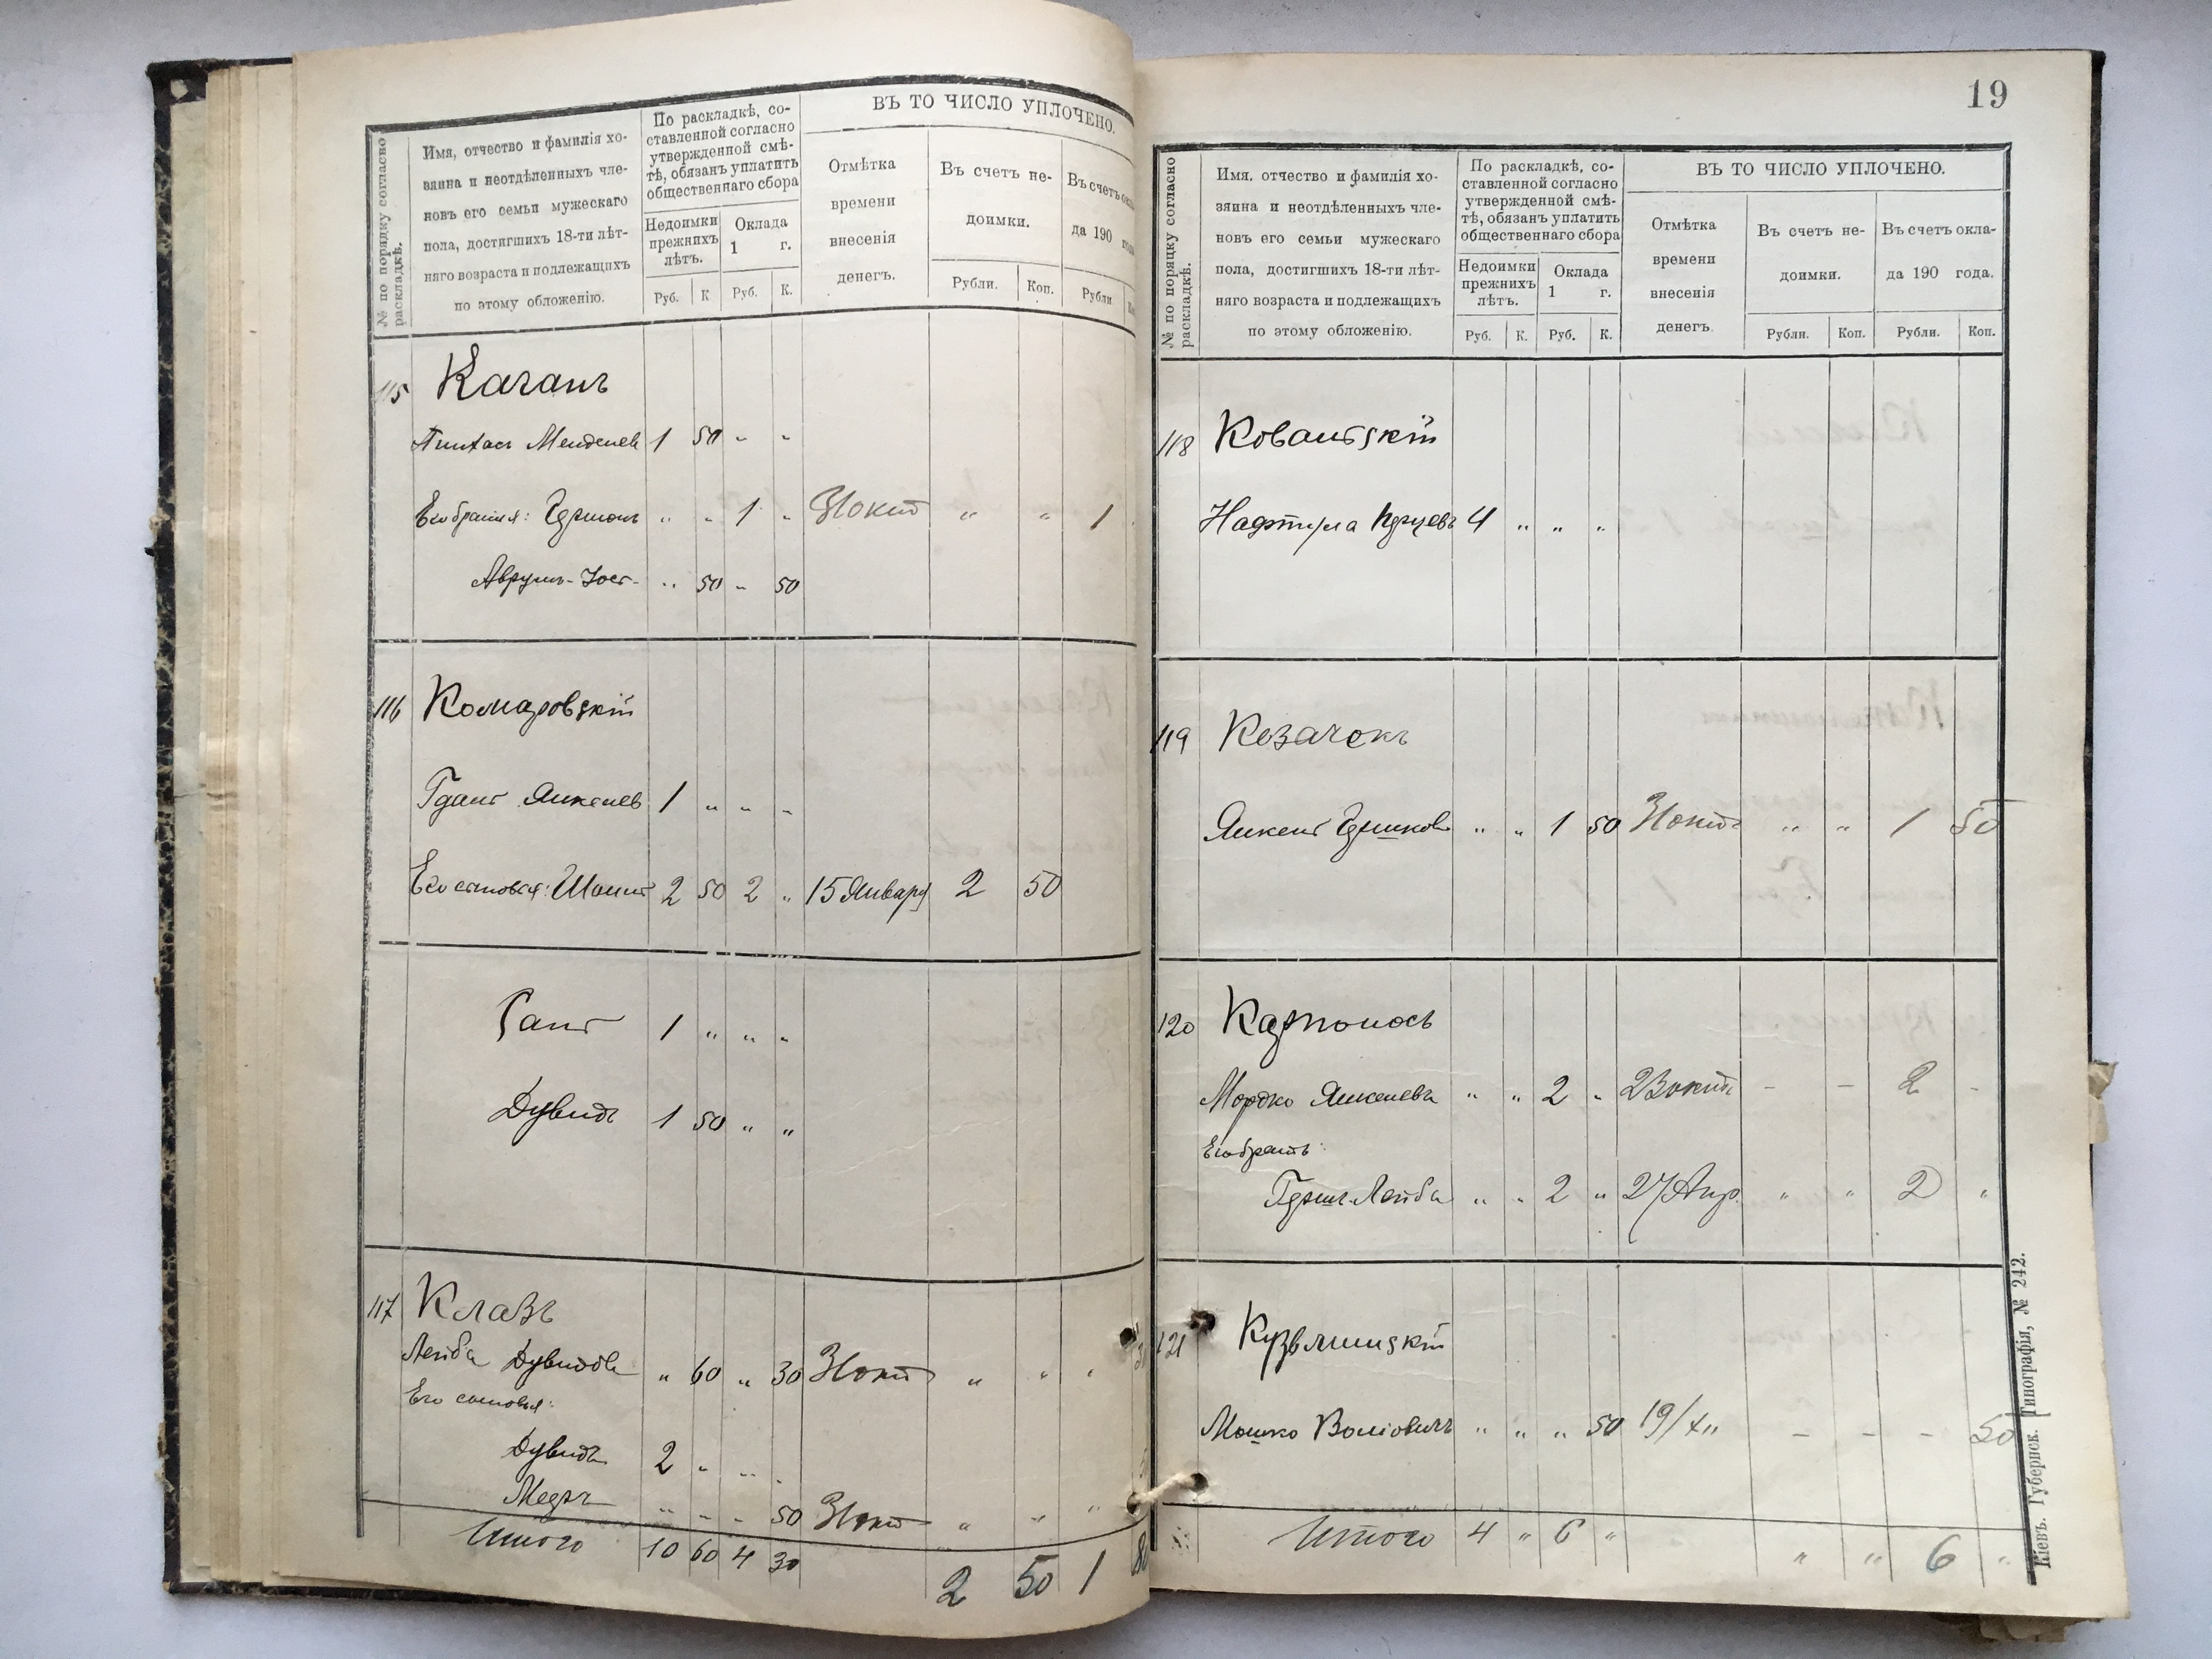 № по порядку согласно раскладкѣ.
Имя, отчество и фамилія хо-
зяина и неотдѣленныхъ чле-
новъ его семьи мужескаго
пола, достигшихъ 18-ти лѣт-
няго возраста и подлежащихъ
по этому обложенію.
По раскладкѣ, со-
ставленной согласно
утвержденной смѣ-
тѣ, обязанъ уплатить
общественнаго сбора
Недоимки
прежнихъ
лѣтъ.
Оклада
1 г.
Руб. К Руб. К.
ВЪ ТО ЧИСЛО УПЛОЧЕНО.
Отмѣтка
времени
внесенія
денегъ.
Въ счетъ не-
доимки.
Рубли. Коп.
Въ счетъ окла
да 190 года
Рубли
115 Каганъ
Пинхасъ Менделев 1 50 " "
Его братья: " " 1 " 31 окт " " 1
Аврумъ-Іось " 50 " 50
116 Комаровскій
Янкелев 1 " " "
Его сыновья: 2 50 2 " 15 Января 2 50
1 " " "
Дувидъ 1 50 " "
117 Клазъ
Лейба Дувидов " 60 " 30 31 окт " " "
Его сыновья:
Дувидъ 2 " " "
Мееръ " " " 50 31 окт " " "
Итого 10 60 4 30 2 50 1 80
19
№ по порядку согласно раскладкѣ.
Имя, отчество и фамилія хо-
зяина и неотдѣленныхъ чле-
новъ его семьи мужескаго
пола, достигшихъ 18-ти лѣт-
няго возраста и подлежащихъ
по этому обложенію.
По раскладкѣ, со-
ставленной согласно
утвержденной смѣ-
тѣ, обязанъ уплатить
общественнаго сбора
Недоимки
прежнихъ
лѣтъ.
Оклада
1 г.
Руб. К. Руб. К.
ВЪ ТО ЧИСЛО УПЛОЧЕНО.
Отмѣтка
времени
внесенія
денегъ.
Въ счетъ не-
доимки.
Рубли. Коп.
Въ счетъ окла-
да 190 года.
Рубли. Коп.
118 Ковальскій
Нафтула 4 " " "
119 Козачокъ
Янкель Гершков " " 1 50 31 окт " " 1 50
120 Карпоносъ
Мордко Янкелевъ " " 2 " 23 окт - - 2 -
Его братъ:
Герш-Лейба " " 2 " 27 Апр. " " 2 "
121 Кузьминскій
Мошко " " " 50 19/XII - - - 50
Итого 4 " 6 " " " 6 "
Кіевъ. Губернск. Типографія, № 242.